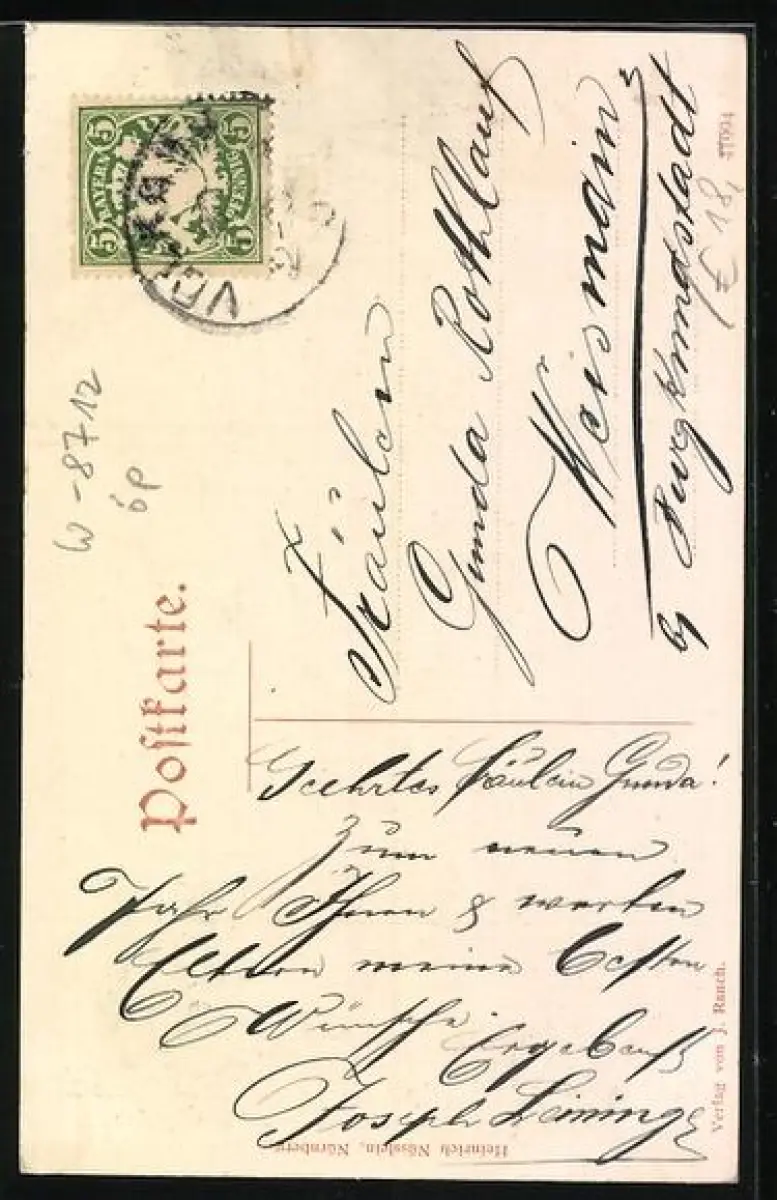 Postkarte.
BAYERN
5 5
5 5
Fräulein
Gunda Rothlauf
Weismain
b/ Burgkunstadt
Geehrtes Fräulein Gunda!
Zum neuen
Jahr Ihnen & werten
Eltern meine besten
Wünsche.
Ergebenst
Joseph
W-8712
Verlag von J. Rauch.
Heinrich Nüsslein, Nürnberg.